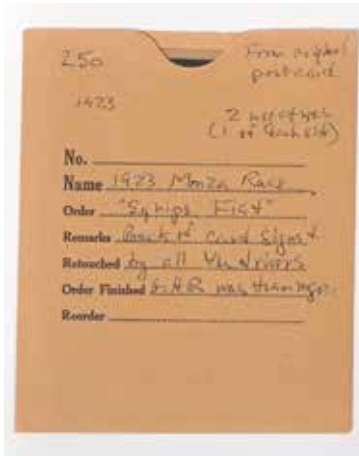 250
From original
postcard
1923
2 negatives
(1 of each side)
No.
Name 1923 Monza Race
Order "Equipe Fiat"
Remarks Back of card signed
Retouched by all the drivers
Order Finished was
Reorder